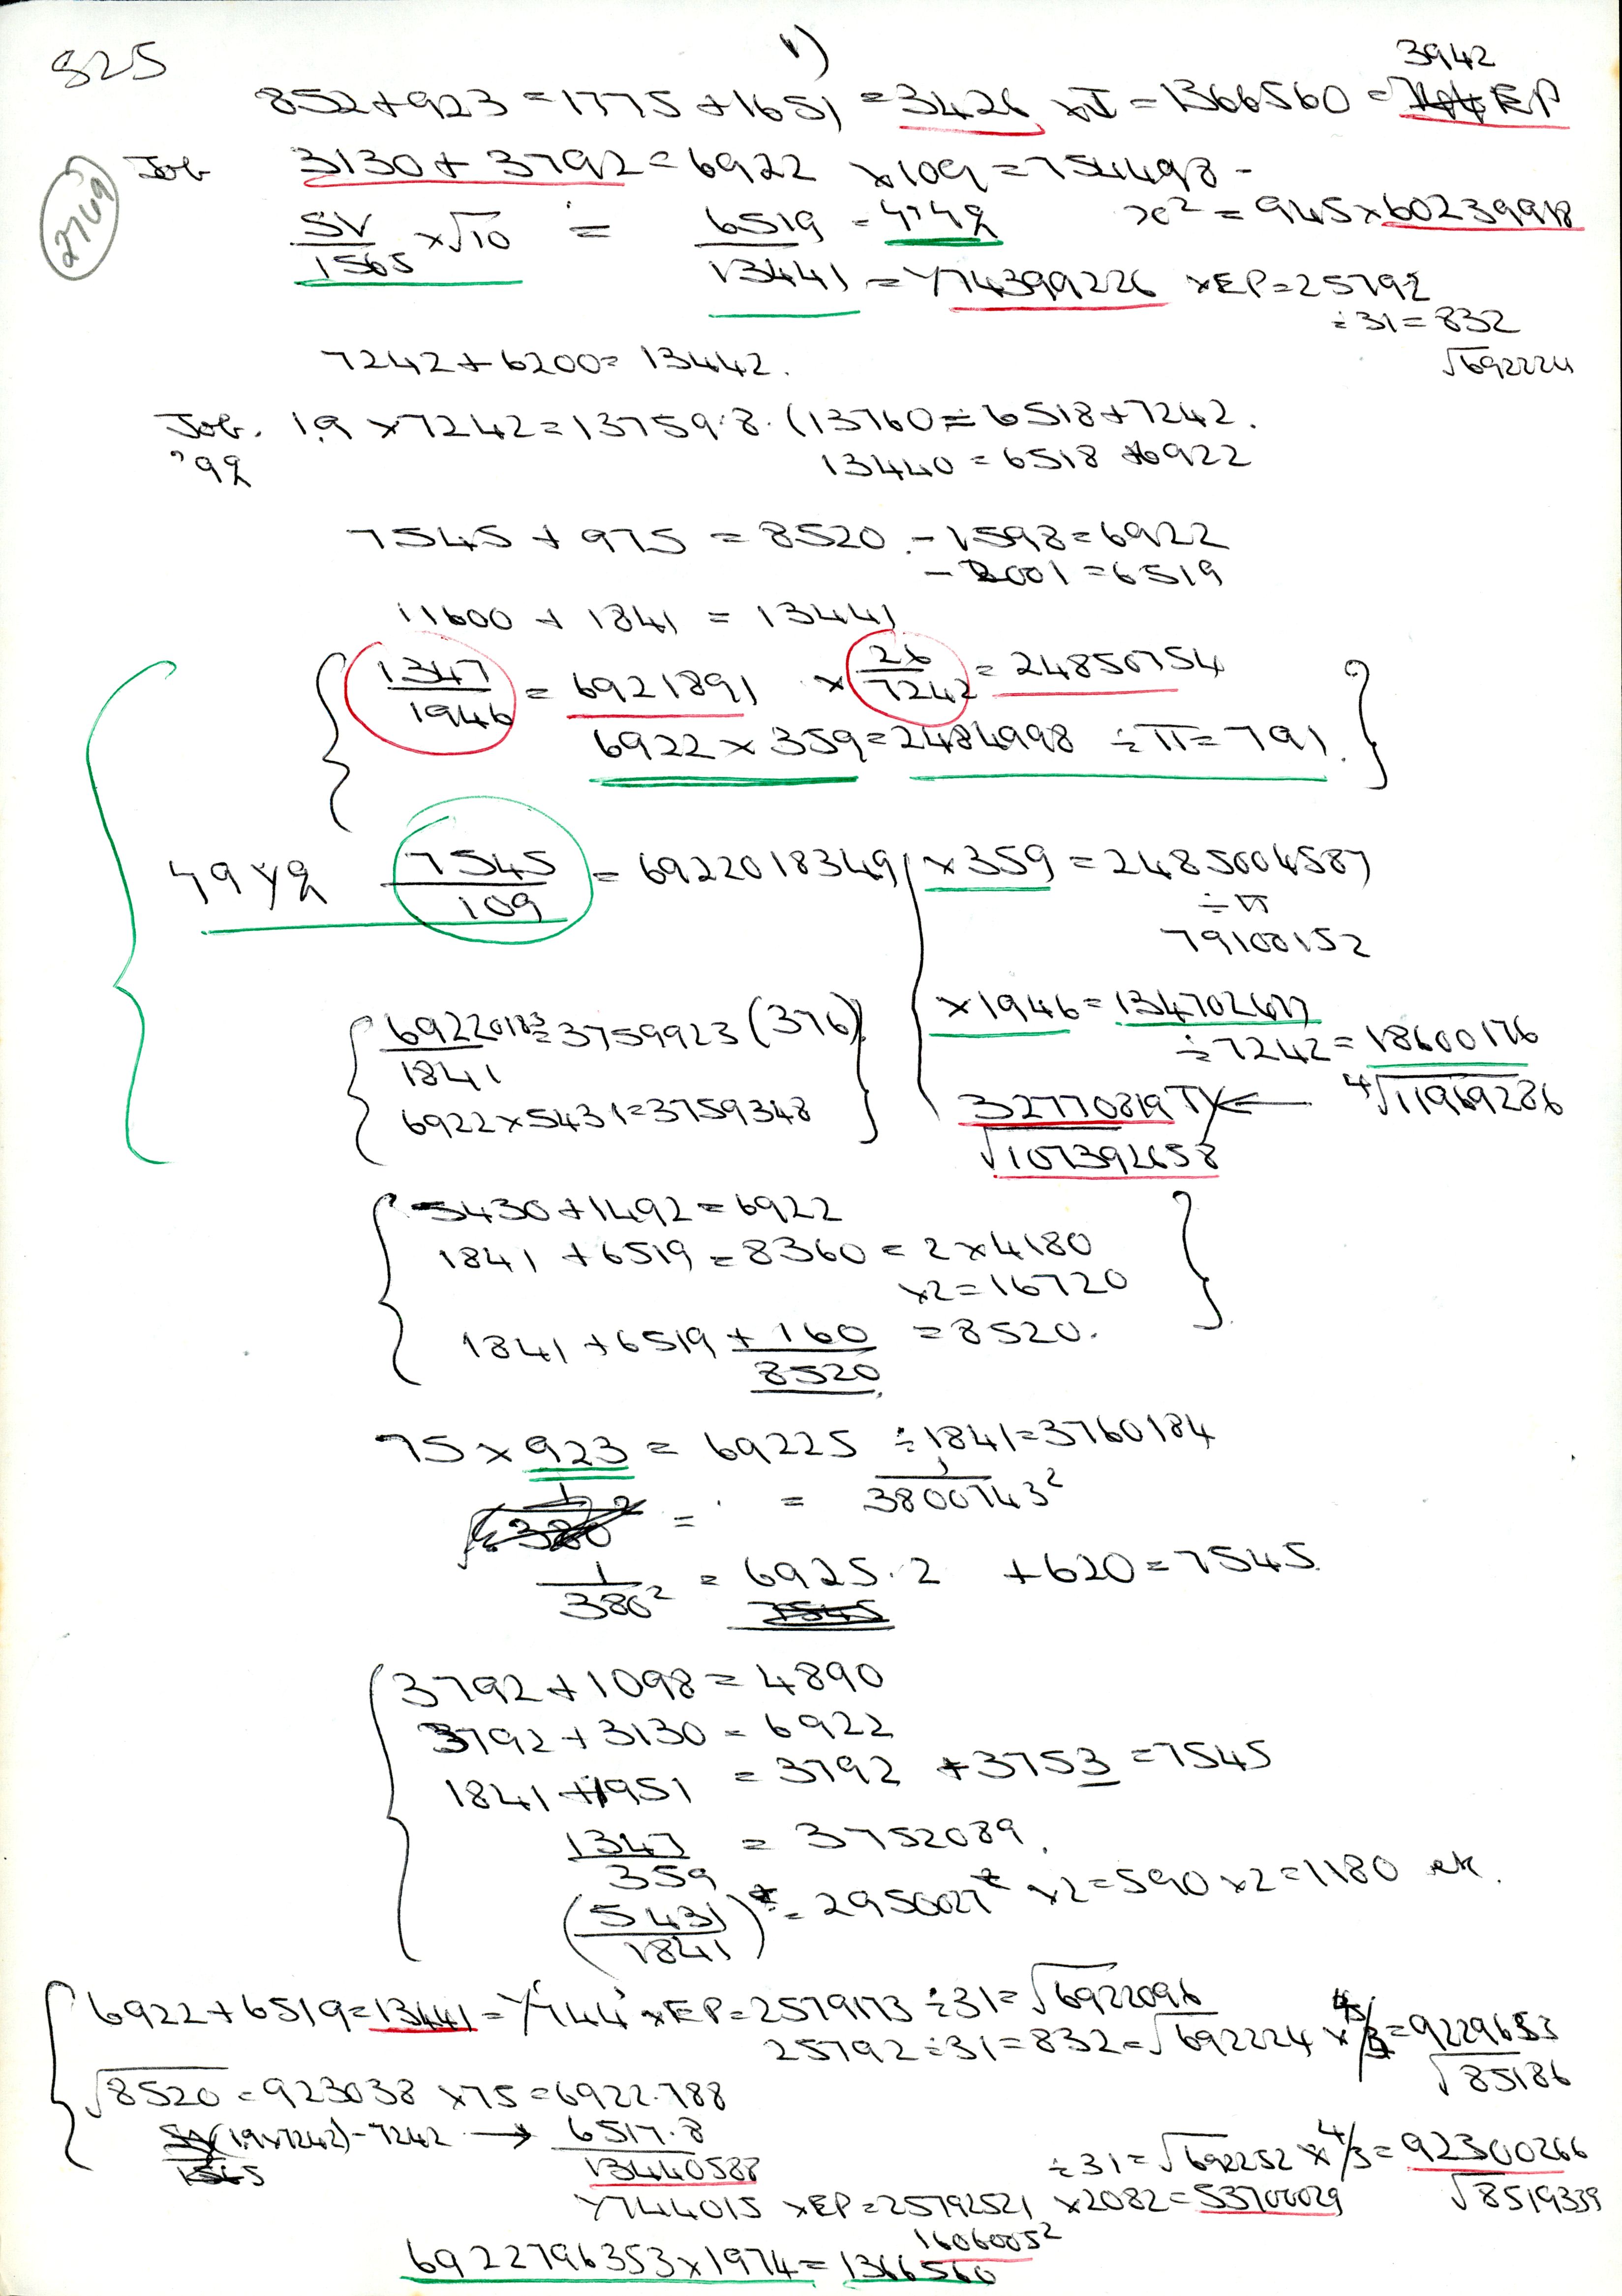 825
1)
3942
852+923 = 1775 + 1651 = 3426 × I = 1366560 = EP
2769
Job 3130 + 3792 = 6922 × 109 = 754498 -
SV/1565 × √10 = 6519/13441 = x² = 945 × 60239998
13441 = Y74399226 × EP = 25792
÷ 31 = 832
√692224
7242 + 6200 = 13442.
Job. 1.9 × 7242 = 13759.8. (13760 = 6518 + 7242.
'98 13440 = 6518 + 6922
7545 + 975 = 8520. - 1598 = 6922
- 2001 = 6519
11600 + 1841 = 13441
1347/1946 = 6921891 × 26/7242 = 24850754
6922 × 359 = 2484998 ÷ π = 791.
7545/109 = 6922018349 × 359 = 2485004587
÷ π
79100152
× 1946 = 134702677
÷ 7242 = 18600176
69220183/1841 = 3759923 (376)
6922 × 5431 = 3759348
32770819 TY ← ⁴√11969286
√107392658
5430 + 1492 = 6922
1841 + 6519 = 8360 = 2 × 4180
×2 = 16720
1841 + 6519 + 160 = 8520.
8520
75 × 923 = 69225 ÷ 1841 = 3760184
= 1/3800743²
1/380² = 6925.2 + 620 = 7545.
3792 + 1098 = 4890
3792 + 3130 = 6922
1841 + 1951 = 3792 + 3753 = 7545
1347/359 = 3752089.
(5431/1841) = 2950027 × 2 = 590 × 2 = 1180 etc.
6922 + 6519 = 13441 = Y744 × EP = 2579173 ÷ 31 = √6922096
25792 ÷ 31 = 832 = √692224 × 4/3 = 9229653
√85186
√8520 = 923038 × 75 = 6922.788
(1.9 × 7242) - 7242 → 6517.8/13440588
÷ 31 = √692252 × 4/3 = 92300266
√8519339
Y744015 × EP = 25792521 × 2082 = 53700029
1606005²
6922796353 × 1974 = 1366560